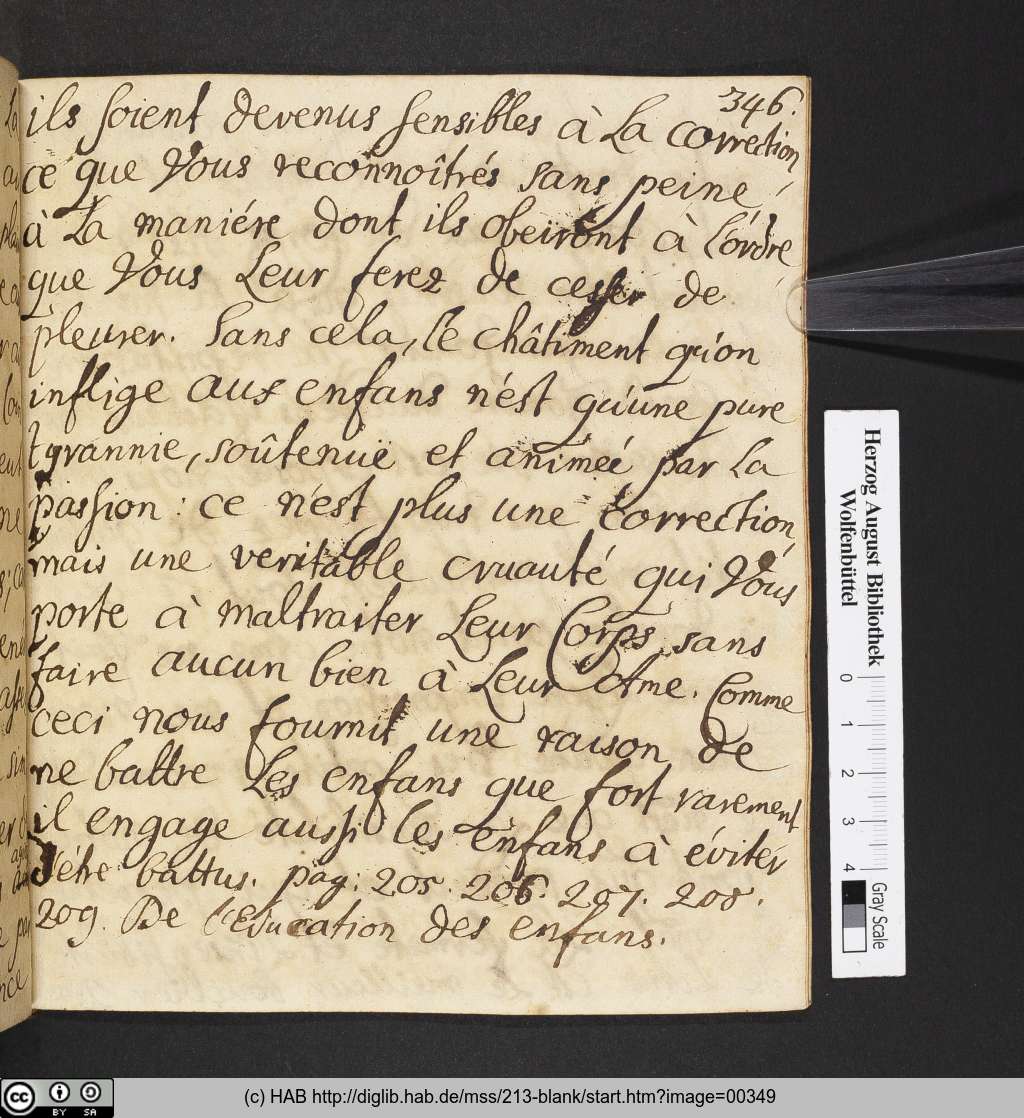 346.
ils soient devenus sensibles à La correction
ce que Vous reconnoîtrés sans peine,
à La maniére dont ils obeiront à l'ordre
que Vous Leur ferez de cesser de
pleurer. Sans cela, le châtiment qu'on
inflige aux enfans n'est qu'une pure
tyrannie, soûtenuë et animeé par La
passion: ce n'est plus une correction,
mais une veritable cruauté qui Vous
porte à maltraiter Leur Corps, sans
faire aucun bien à Leur Ame. Comme
ceci nous fournit une raison de
ne battre Les enfans que fort rarement
il engage aussi les enfans à éviter
d'étre battus. pag: 205. 206. 207. 208.
209. De l'Education des enfans.
Herzog August Bibliothek
Wolfenbüttel
0 1 2 3 4
Gray Scale
cc BY SA
(c) HAB http://diglib.hab.de/mss/213-blank/start.htm?image=00349